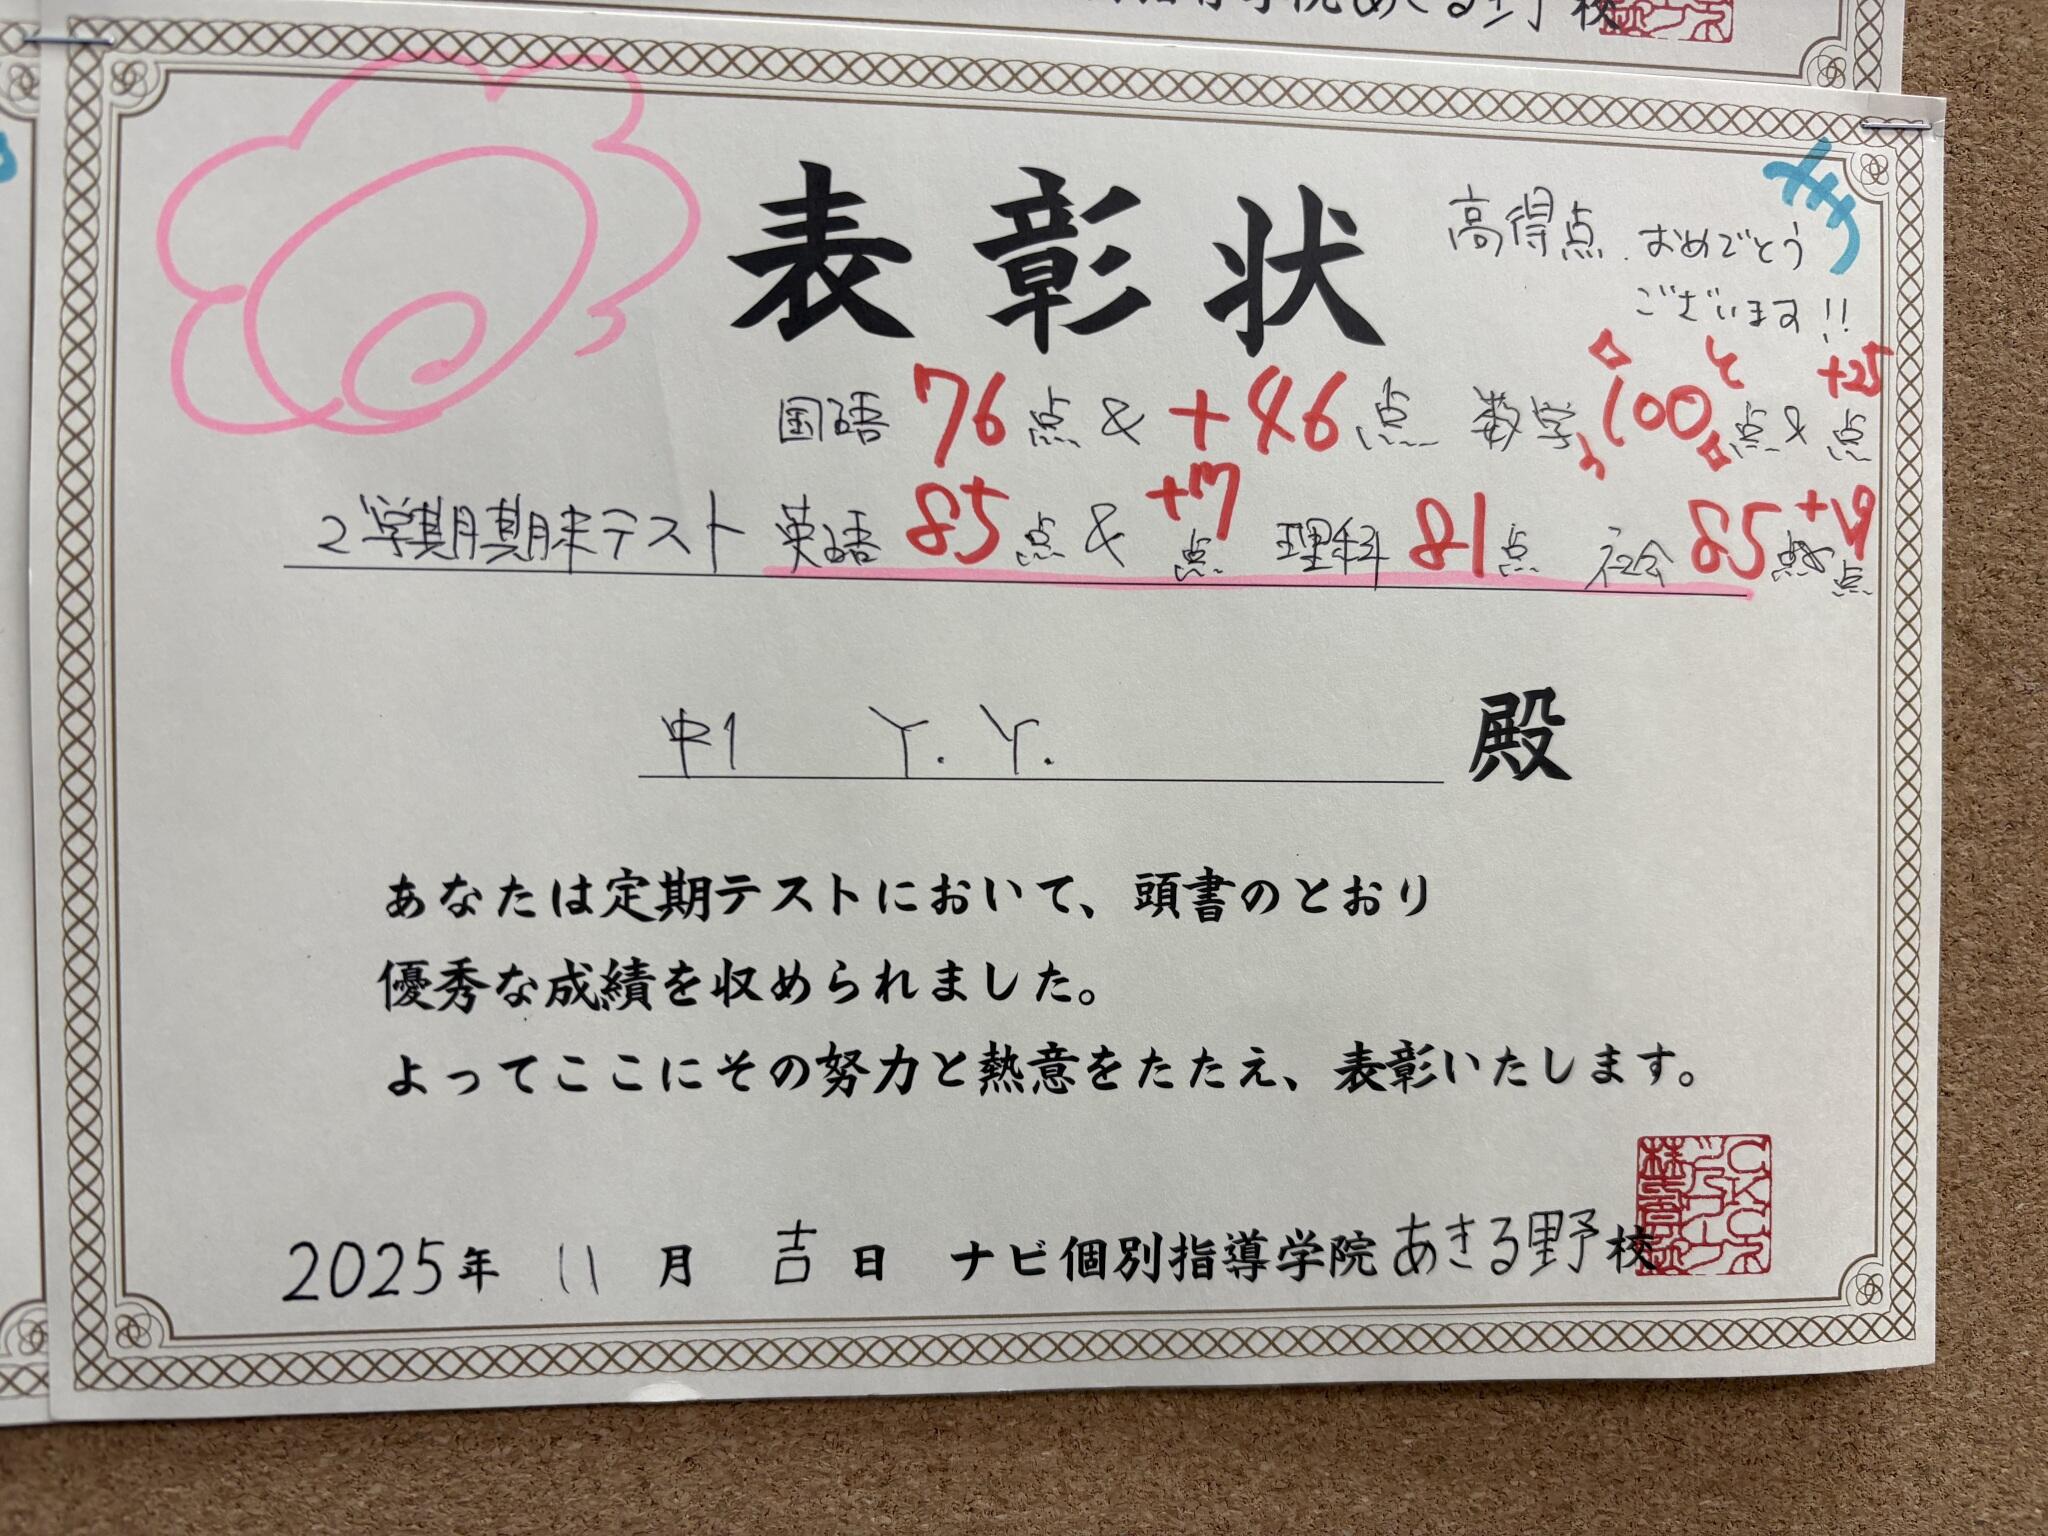 表彰状
高得点 おめでとう
ございます!!
国語 76点 & +46点 数学 100点 & +25点
2学期期末テスト 英語 85点 & +17点 理科 81点 社会 85点 & +19点
中1 Y. Y. 殿
あなたは定期テストにおいて、頭書のとおり
優秀な成績を収められました。
よってここにその努力と熱意をたたえ、表彰いたします。
2025年 11月 吉日 ナビ個別指導学院 あきる野校